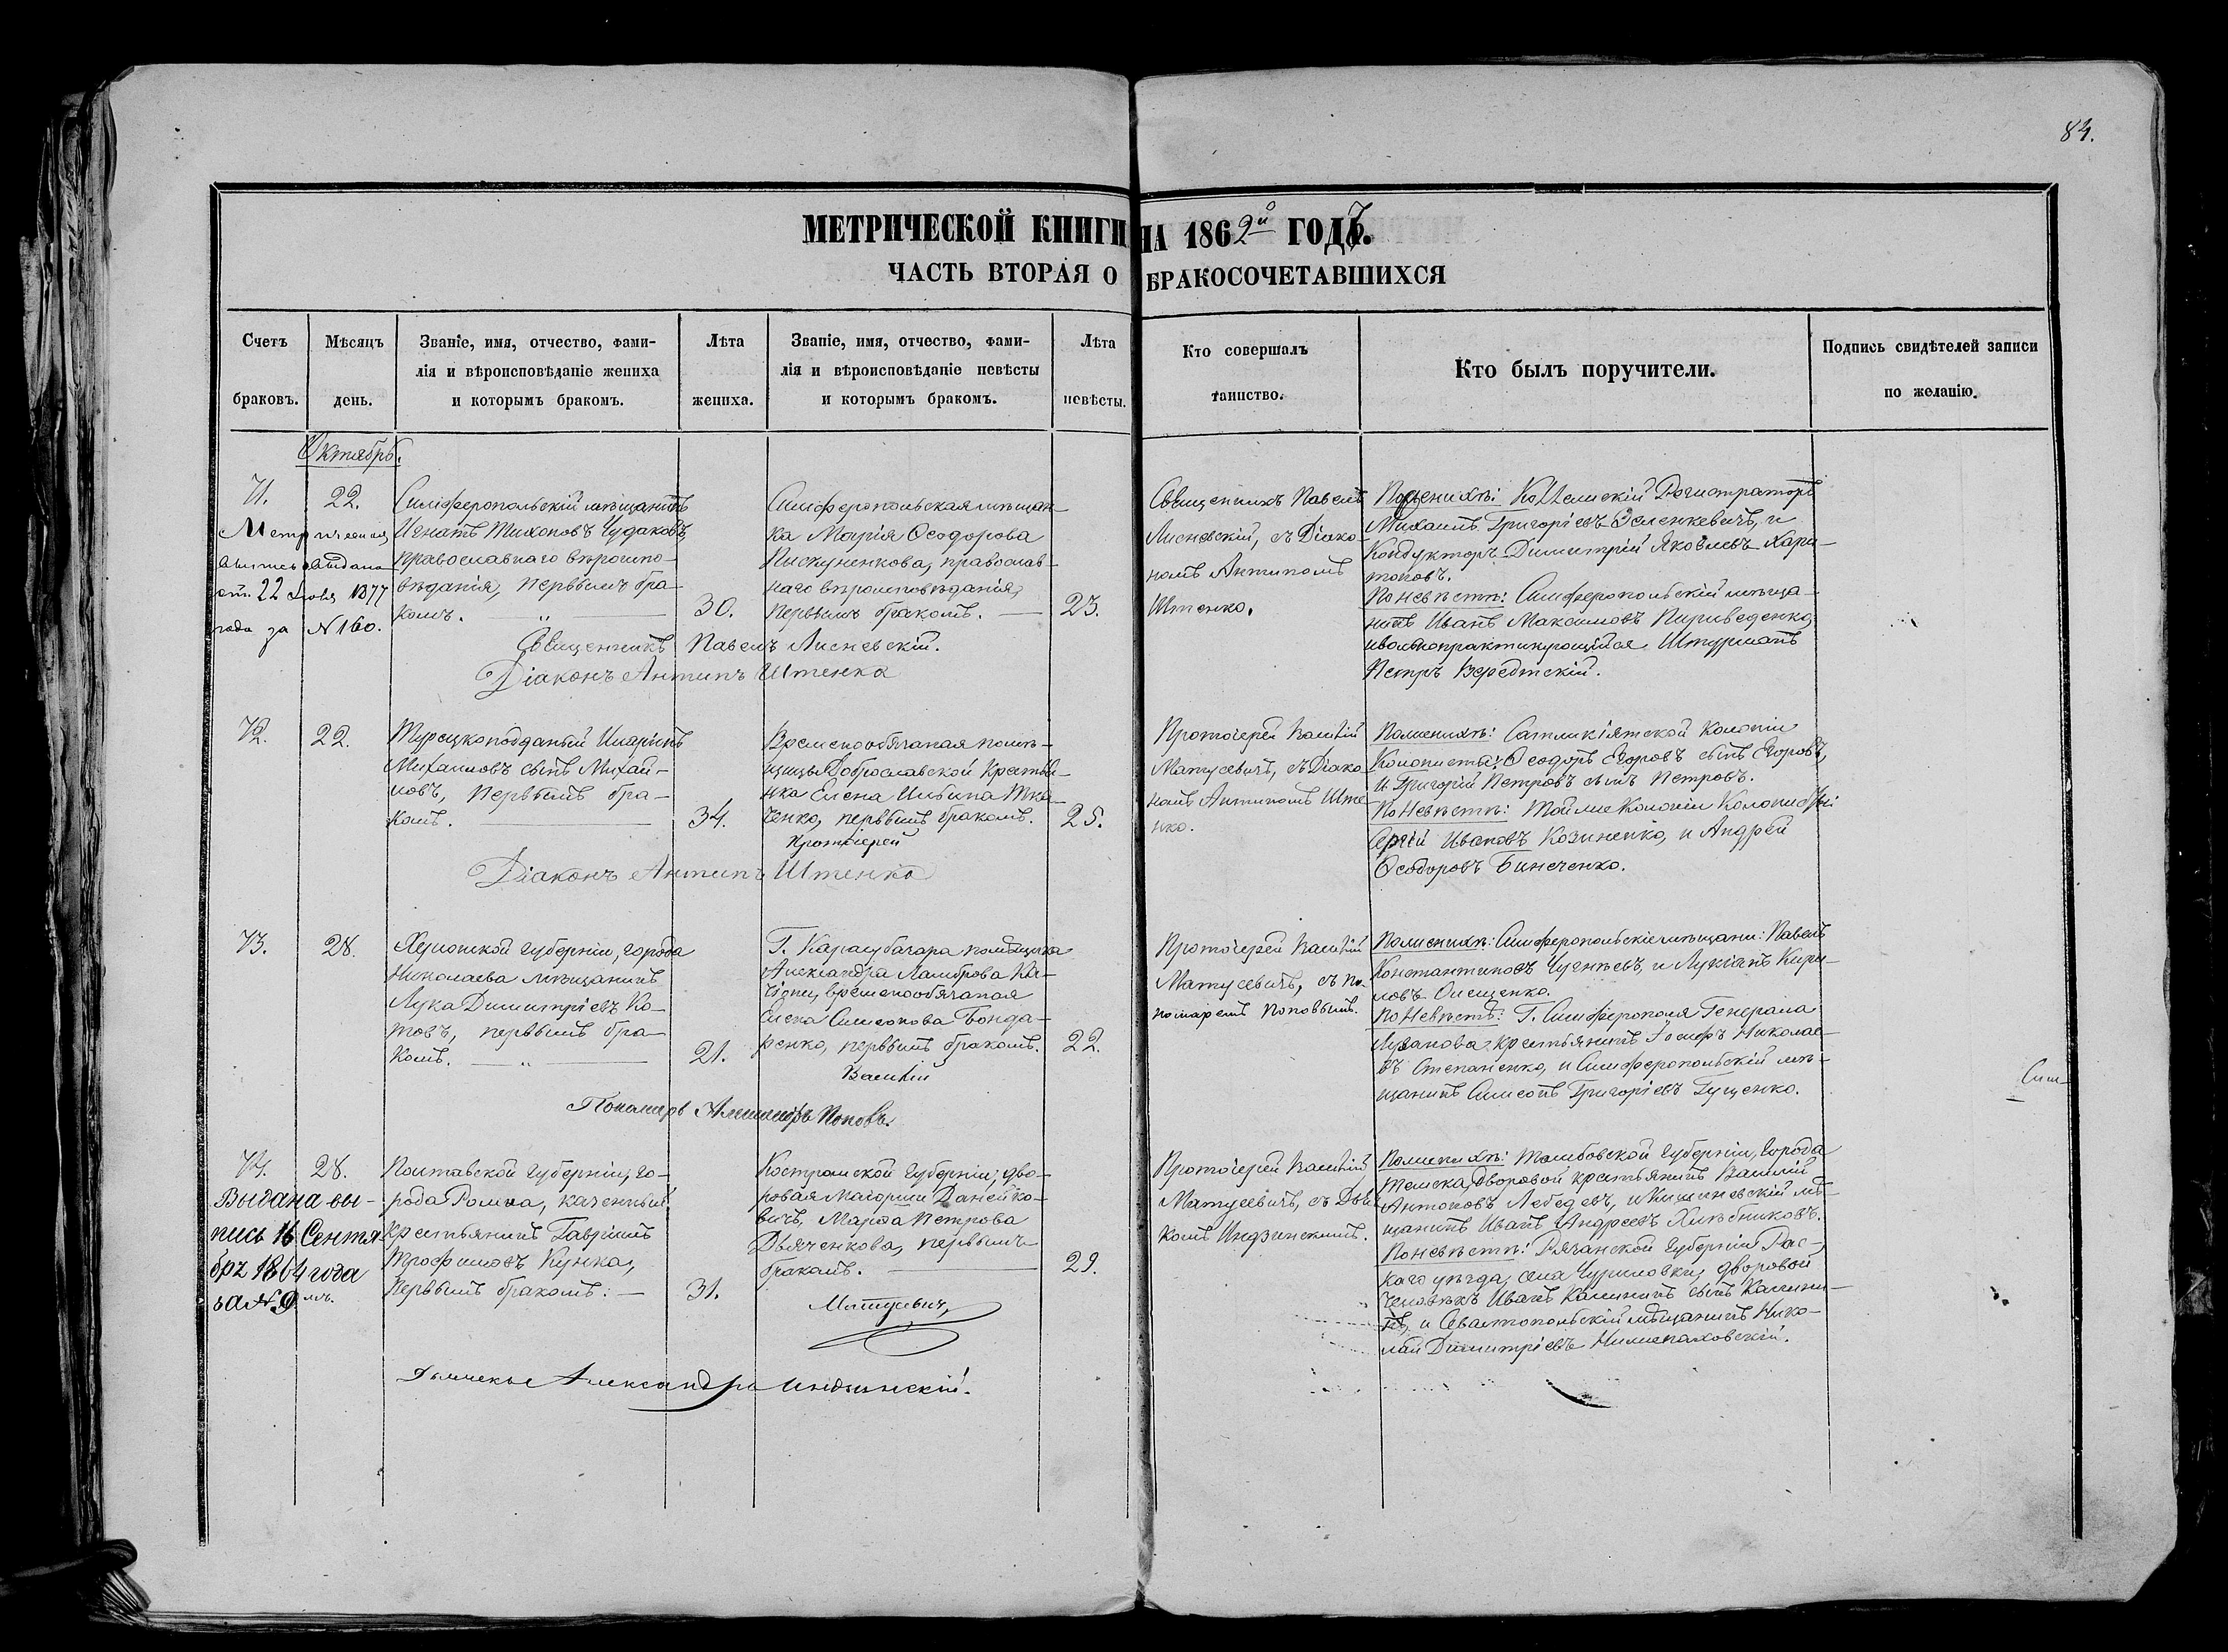 84.
МЕТРИЧЕСКОЙ КНИГИ НА 1862й ГОДЪ.
ЧАСТЬ ВТОРАЯ О БРАКОСОЧЕТАВШИХСЯ
Счетъ браковъ.
Мѣсяцъ день.
Званіе, имя, отчество, фами-
лія и вѣроисповѣданіе жениха
и которымъ бракомъ.
Лѣта жениха.
Званіе, имя, отчество, фами-
лія и вѣроисповѣданіе невѣсты
и которымъ бракомъ.
Лѣта невѣсты.
Кто совершалъ
таинство.
Кто былъ поручители.
Подпись свидѣтелей записи
по желанію.
Октябрь.
71.
22.
Метрическая
выпись выдана
от. 22 1877
года за №160.
Симферопольскій мѣщанинъ
Игнатъ Тихоновъ Чудаковъ
православнаго вѣроиспо-
вѣданія, первымъ бра-
комъ.
30.
Симферопольская мѣщан-
ка Марія Ѳеодорова
Пискуненкова, православ-
наго вѣроисповѣданія,
первымъ бракомъ.
23.
Священникъ Павелъ
Лисневскій, съ Діако-
номъ Антипомъ
Штенко.
По женихѣ: Коллежскій Регистраторъ
Михаилъ Григорьевъ Зеленкевичъ, и
Кондукторъ Димитрій Яковлевъ Хари-
тоновъ.
По невѣстѣ: Симферопольскій мѣща-
нинъ Иванъ Максимовъ Пириведенко,
и вольнопрактикующійся Штурманъ
Петръ
Священникъ Павелъ Лисневскій.
Діаконъ Антипъ Штенко
72.
22.
Турецкоподданый
Михаиловъ сынъ Михай-
ловъ, первымъ бра-
комъ.
34.
Временнообязаная помѣ-
щицы Доброславской Крестья-
нка Елена Тка-
ченко, первымъ бракомъ.
25.
Протоіерей Василій
Матусевичъ, съ Діако-
номъ АнтипомъШте-
нко.
По женихѣ: Колоніи
Колонисты: Ѳеодоръ Егоровъ сынъ Егоровъ,
и Григорій Петровъ сынъ Петровъ.
По невѣстѣ: Той же Колоніи Колонисты:
Ивановъ Козиненко, и Андрей
Ѳеодоровъ Бинеченко.
Протоіерей
Діаконъ Антипъ Штенко
73.
28.
Херсонской губерніи, города
Николаева мѣщанинъ
Лука Димитріевъ Ко-
товъ, первымъ бра-
комъ.
21.
Г. Карасубазара помѣщика
Александра Ламброва Ка-
временнообязаная
Елена Симеонова Бонда-
ренко, первымъ бракомъ.
22.
Протоіерей Василій
Матусевичъ, съ По-
номаремъ Поповымъ.
По женихѣ: Симферопольскіе мѣщани: Павелъ
Константиновъ и Лукіанъ Кири-
ловъ Онещенко.
По невѣстѣ: Г. Симферополя Генерала
крестьянинъ Іосифъ Николае-
въ Степаненко, и Симферопольскій мѣ-
щанинъ Симеонъ Григоріевъ Гущенко.
Василій
Пономарь Поповъ.
74.
28.
Выдана вы-
пись 16 Сентя-
бря 1864 года
за № 9
Полтавской губерніи, го-
рода Ромна, казенный
крестьянинъ Гавріилъ
Трофимовъ Кунка,
первымъ бракомъ:
31.
Костромской губерніи, дво-
ровая Маіорши Данейко-
вичъ, Марѳа Петрова
Дьяченкова, первымъ
бракомъ.
29.
Протоіерей Василій
Матусевичъ, съ Дья-
комъ Индзинскимъ.
По женихѣ: Тамбовской губерніи, города
дворовой крестьянинъ Василій
Антоновъ Лебедевъ, и Кишиневскій мѣ-
щанинъ Иванъ Андреевъ Хлѣбниковъ.
По невѣстѣ: Рязанской губерніи Ряс-
каго уѣзда, села Чуриловки, дворовой
человѣкъ Иванъ Калининъ сынъ Калини-
нъ, и Севастопольскій мѣщанинъ Нико-
лай Димитріевъ
Матусевичъ
Александръ Индзинскій.
Сим-